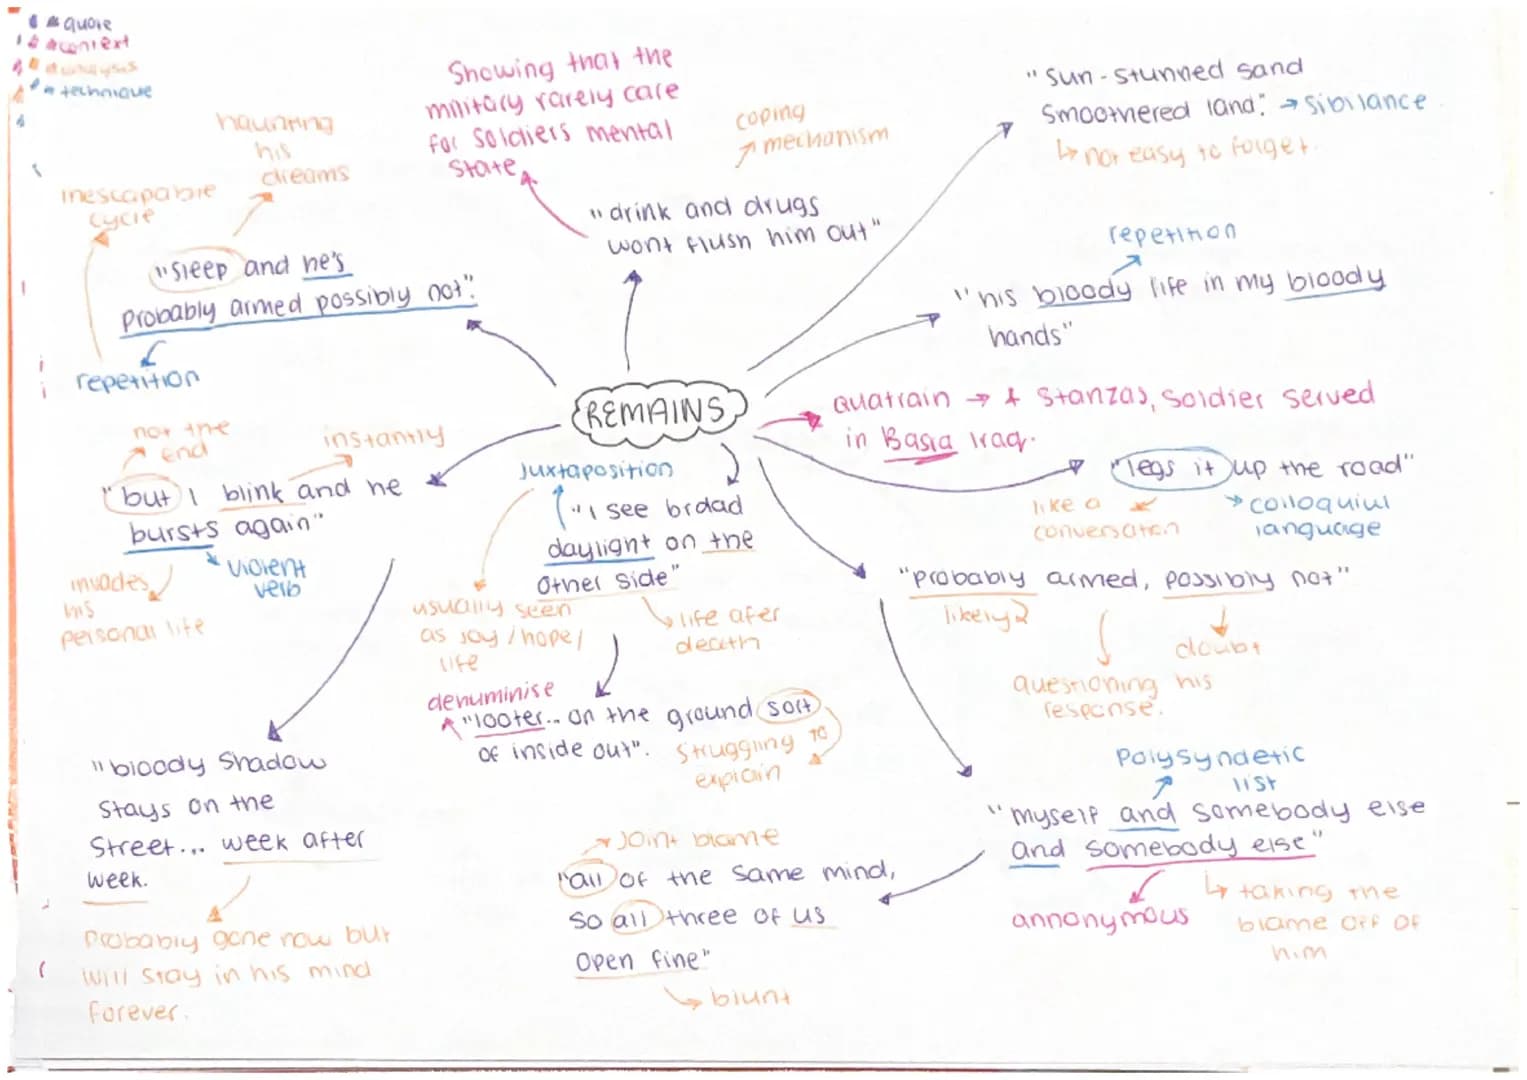 quote
context
analysis
technique
Showing that the
military rarely care
for soldiers mental
state
coping
mechanism
"drink and drugs
wont flush him out"
"sun-stunned sand
smoothered land". → sibilance
↳ not easy to forget.
haunting
his
dreams
inescapable
cycle
"sleep and he's
probably armed possibly not".
repetition
repetition
"his bloody life in my bloody
hands"
REMAINS
quatrain → 7 stanzas, soldier served
in Basra Iraq.
"legs it up the road"
like a
conversation
colloquiul
language
not the
end
instantly
"but I blink and he
bursts again"
violent
verb
invades
his
personal life
juxtaposition
"I see broad
daylight on the
other side"
usually seen
as joy/hope/
life
life afer
death
"probably armed, possibly not"
likely?
doubt
questioning his
response.
denuminise
"looter... on the ground sort
of inside out".
struggling to
explain
"bloody shadow
stays on the
street... week after
week.
Probably gone now but
will stay in his mind
forever.
Joint blame
"all of the same mind,
so all three of us
open fine"
blunt
Polysyndetic
list
"myself and somebody else
and somebody else"
annonymous
↳ taking the
blame off of
him